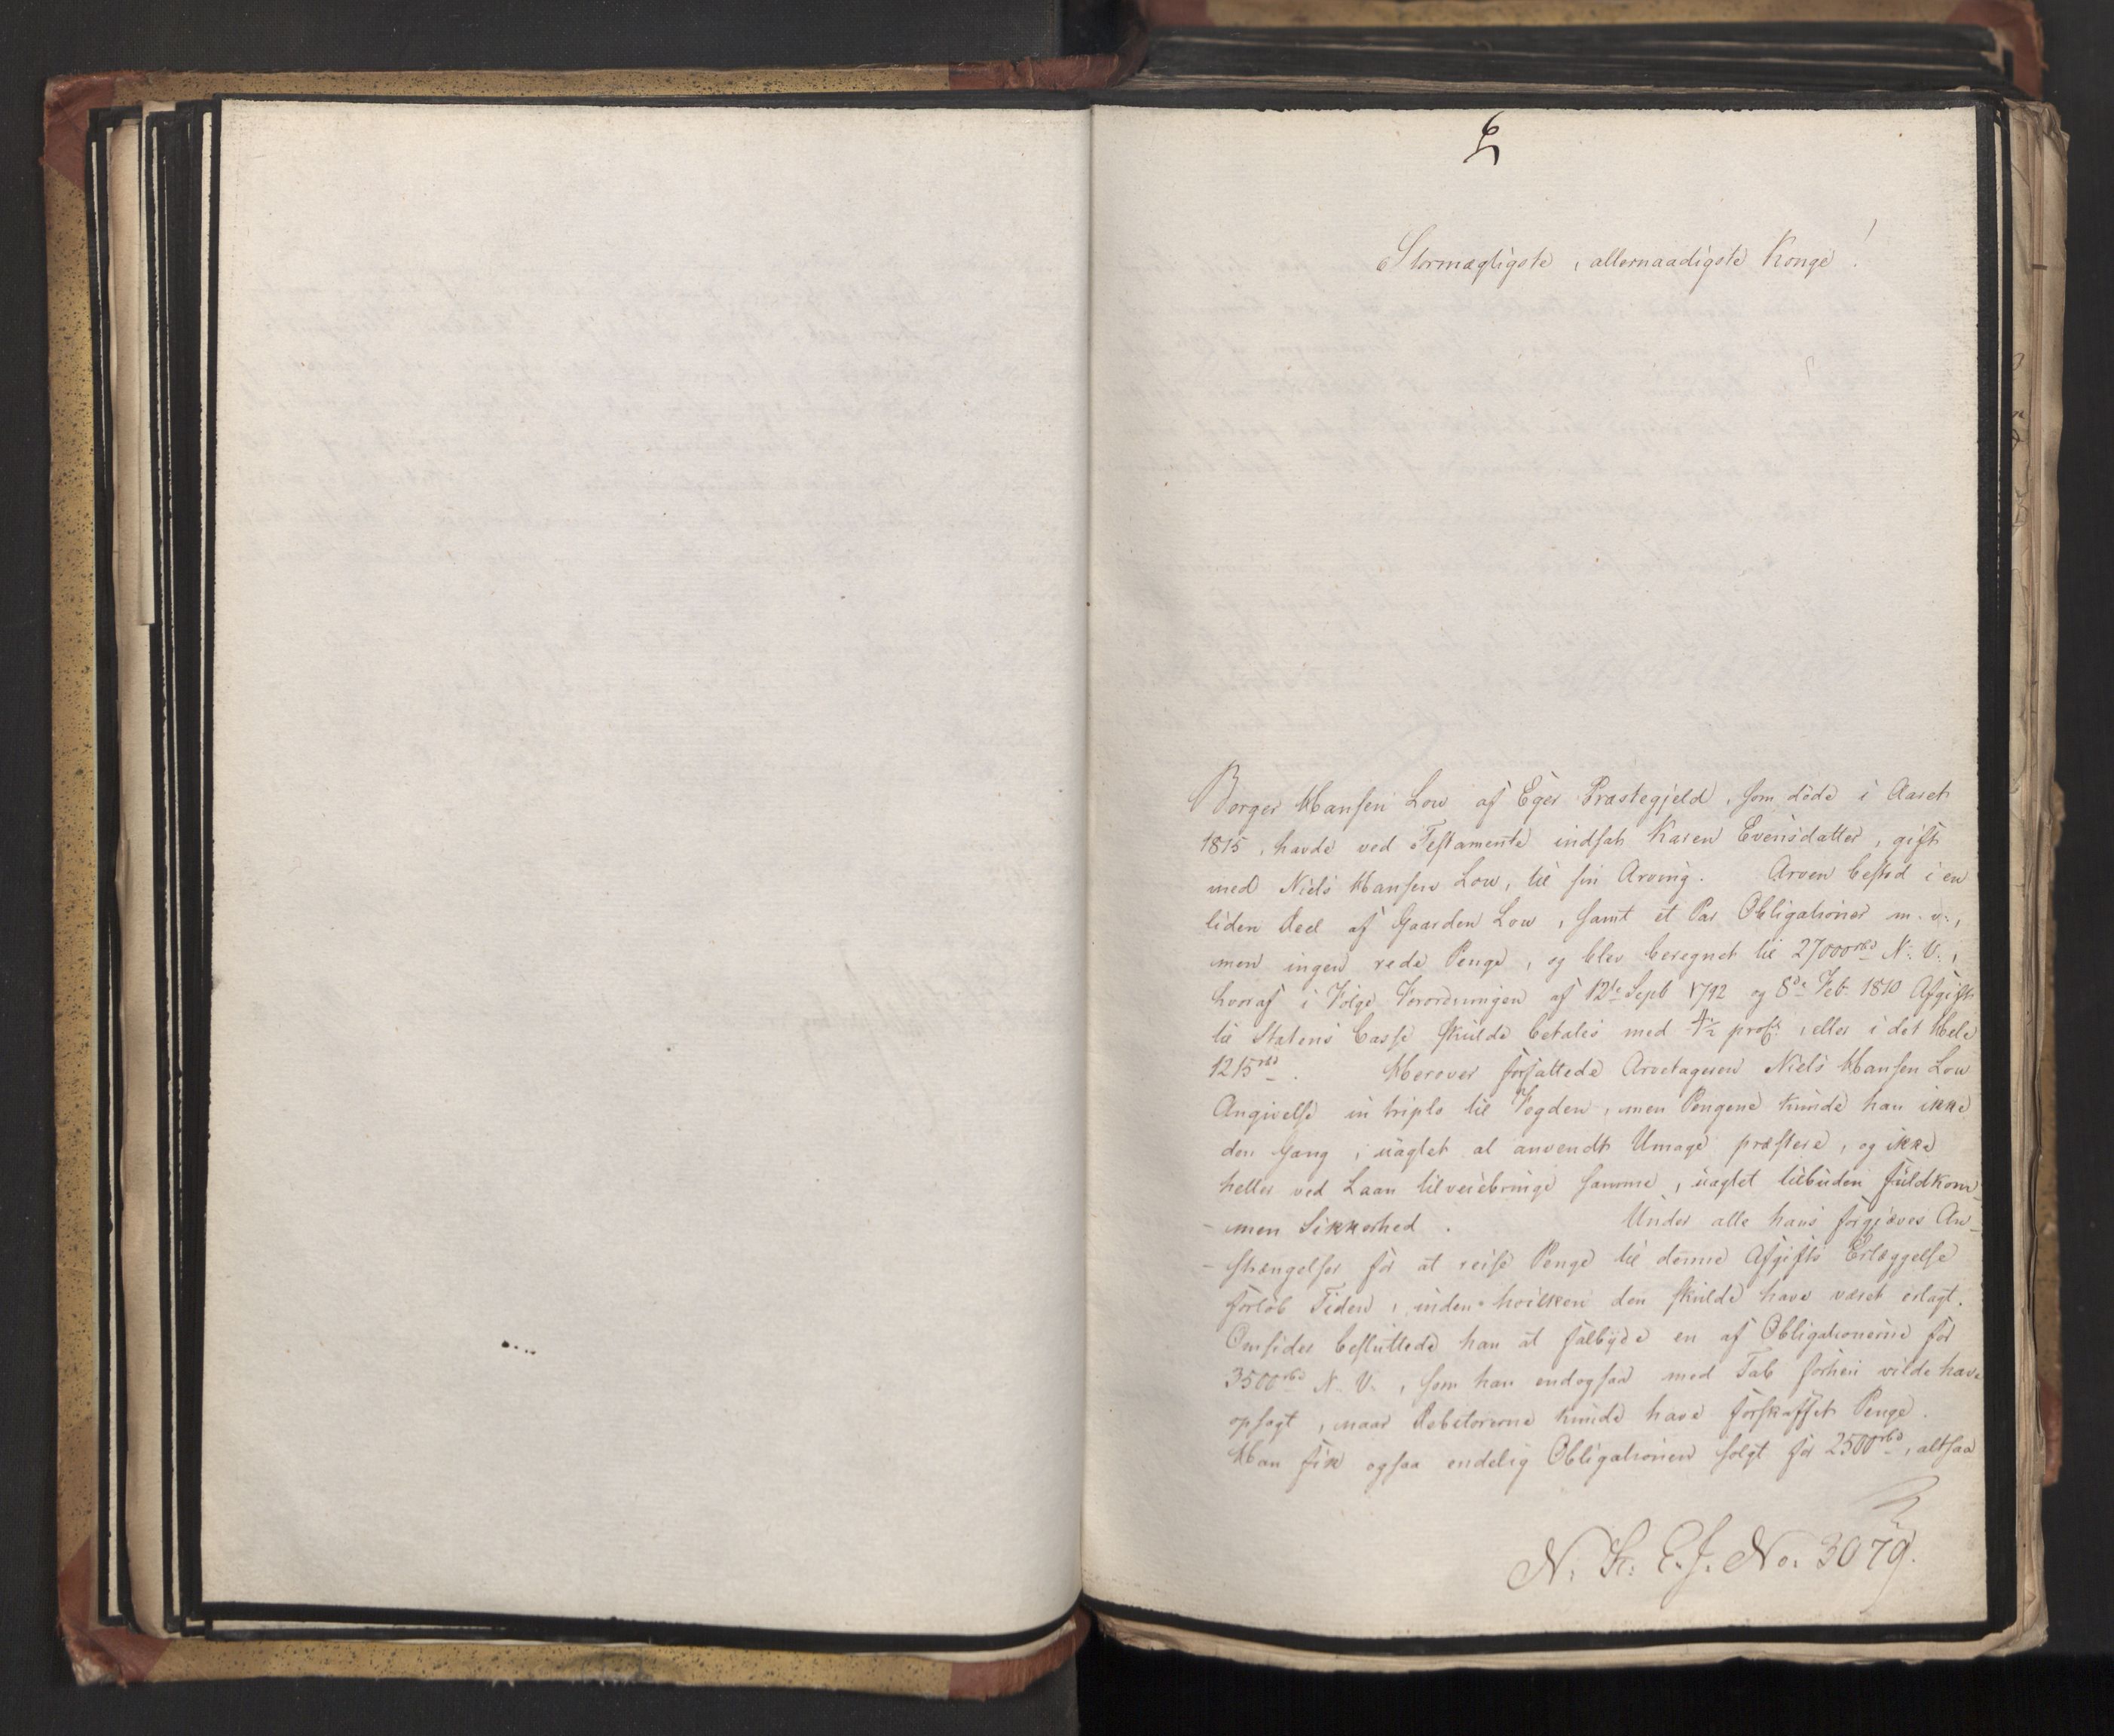 Stormægtigste, allernaadigste Konge!
Børger Hansen Low af Eger Præstegjeld, som døde i Aaret
1815, havde ved Testamente indsat Karen Evensdatter, gift
med Niels Hansen Low, til sin Arving. Arven bestod i en
liden Deel af Gaarden Low, samt et Par Obligationer m. v.,
men ingen rede Penge, og blev beregnet til 27000 rbd N. V.,
hvoraf i Følge Forordningen af 12te Sept 1792 og 8de Feb. 1810 Afgift
til Statens Casse skulde betales med 4½ proCt, eller i det Hele
1215 rbd. Herover forfattede Arvetageren Niels Hansen Low
Angivelse in triplo til Fogden, men Pengene kunde han ikke
den Gang, uagtet al anvendt Umage præstere, og ikke
heller ved Laan tilveiebringe samme, uagtet tilbuden fuldkom-
-men Sikkerhed. Under alle hans forgjæves An-
-strængelser for at reise Penge til denne Afgifts Erlæggelse
forløb Tiden, inden hvilken den skulde have været erlagt.
Omsider besluttede han at falbyde en af Obligationerne for
3500 rbd N. V., som han endogsaa med Tab forhen vilde have
opsagt, naar Debitorerne kunde have forskaffet Penge.
Han fik ogsaa endelig Obligationen solgt for 2500 rbd, altsaa
N. K. E. J. No. 3079.